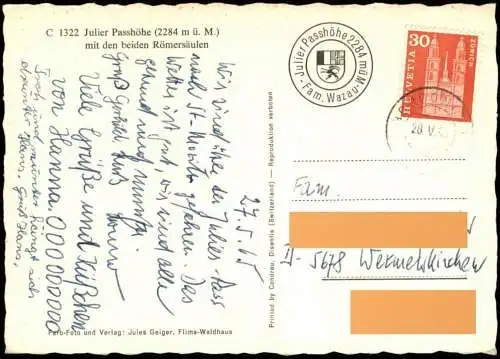 C 1322 Julier Passhöhe (2284 m ü. M.)
mit den beiden Römersäulen
27.5.65
Wir sind über den Julier-Pass
nach St. Moritz gefahren. Das
Wetter ist gut, wir sind alle
gesund und munter.
Gruß
Viele Grüße und Küßchen
von Hanna. 0000000000
Frisch und munter
Hans.
Farb-Foto und Verlag: Jules Geiger, Flims-Waldhaus
Printed by Condrau, Disentis (Switzerland) — Reproduktion verboten
Julier Passhöhe 2284 m ü. M.
Fam. Wazau
30
HELVETIA
ZÜRICH
Fam.
5678 Wermelskirchen